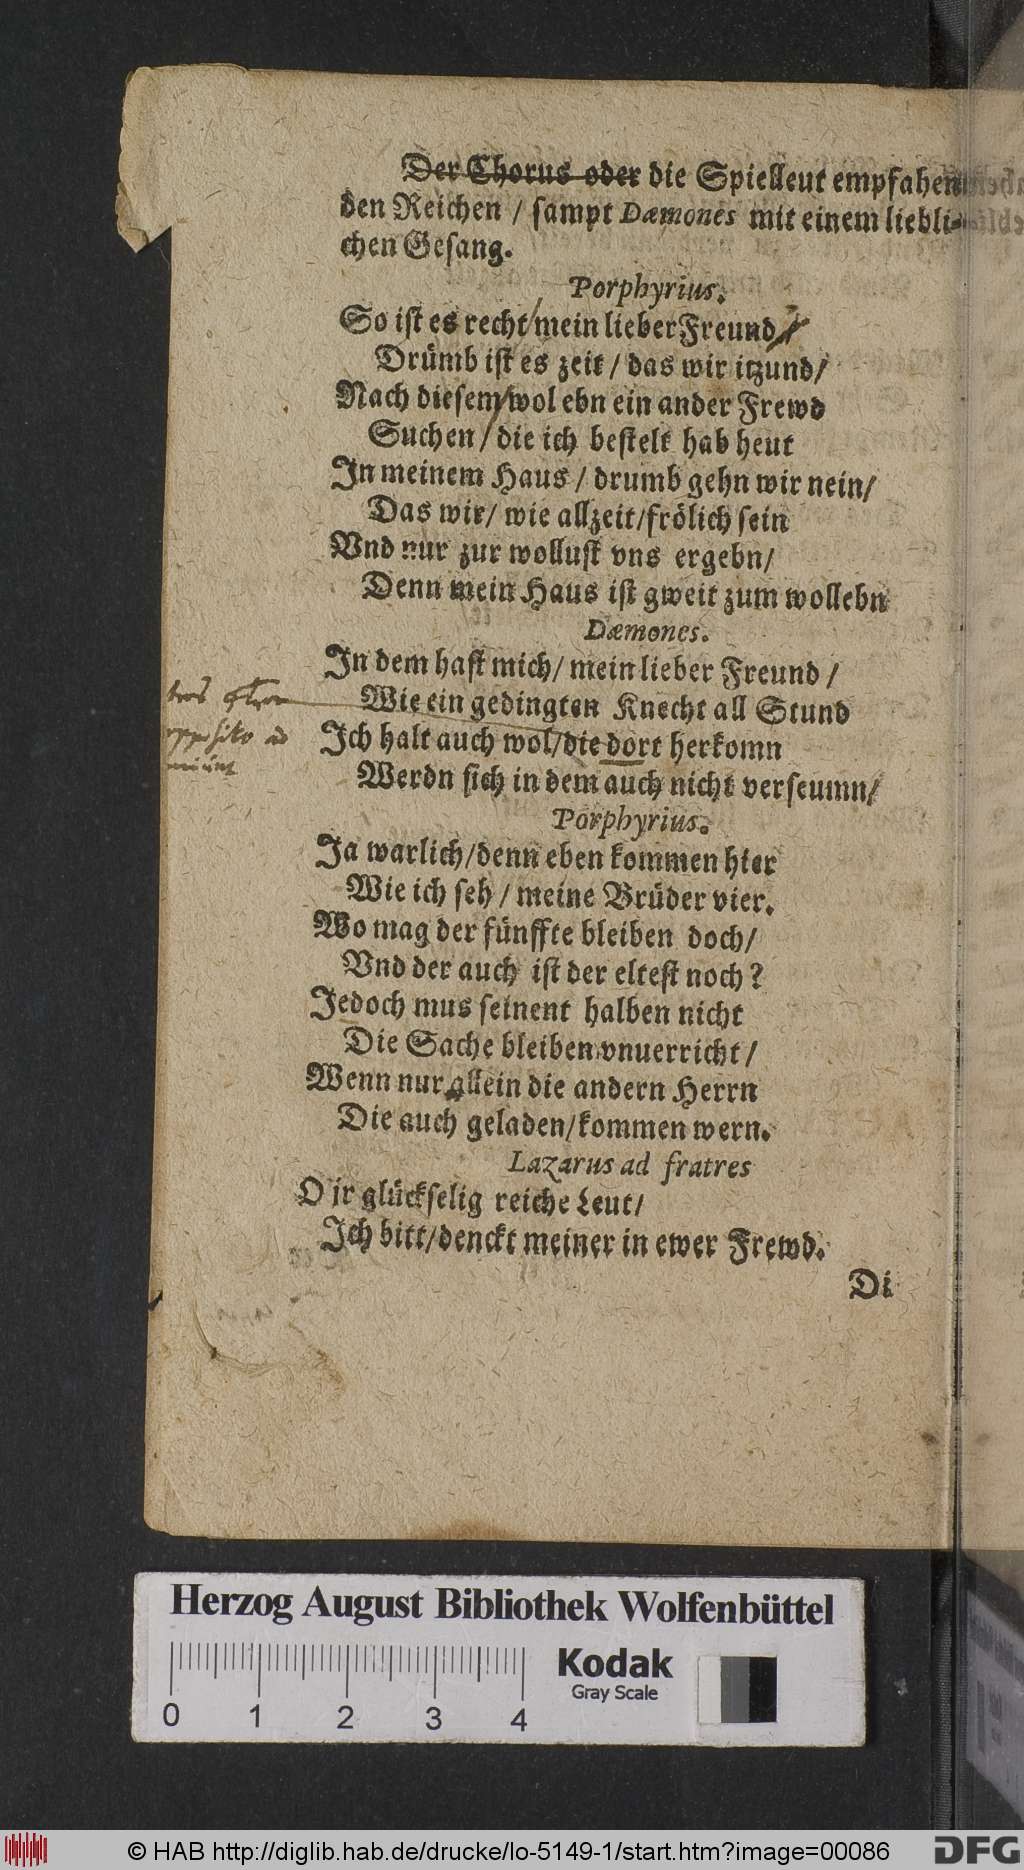 Der Chorus oder die Spielleut empfahen
den Reichen / sampt Dæmones mit einem liebli-
chen Gesang.
Porphyrius.
So ist es recht/mein lieber Freund/
Drümb ist es zeit / das wir itzund/
Nach diesem/wol ebn ein ander Frewd
Suchen / die ich bestelt hab heut
In meinem Haus / drumb gehn wir nein/
Das wir/ wie allzeit/frölich sein
Vnd nur zur wollust vns ergebn/
Denn mein Haus ist gweit zum wollebn
Dæmones.
In dem hast mich/ mein lieber Freund /
Wie ein gedingten Knecht all Stund
Ich halt auch wol/die dort herkomn
Werdn sich in dem auch nicht verseumn/
Porphyrius.
Ja warlich/denn eben kommen hier
Wie ich seh / meine Brüder vier.
Wo mag der fünffte bleiben doch/
Vnd der auch ist der eltest noch?
Jedoch mus seinent halben nicht
Die Sache bleiben vnuerricht/
Wenn nur allein die andern Herrn
Die auch geladen/kommen wern.
Lazarus ad fratres
O jr glückselig reiche Leut/
Ich bitt/denckt meiner in ewer Frewd.
Di
Herzog August Bibliothek Wolfenbüttel
Kodak
Gray Scale
0 1 2 3 4
© HAB http://diglib.hab.de/drucke/lo-5149-1/start.htm?image=00086
DFG